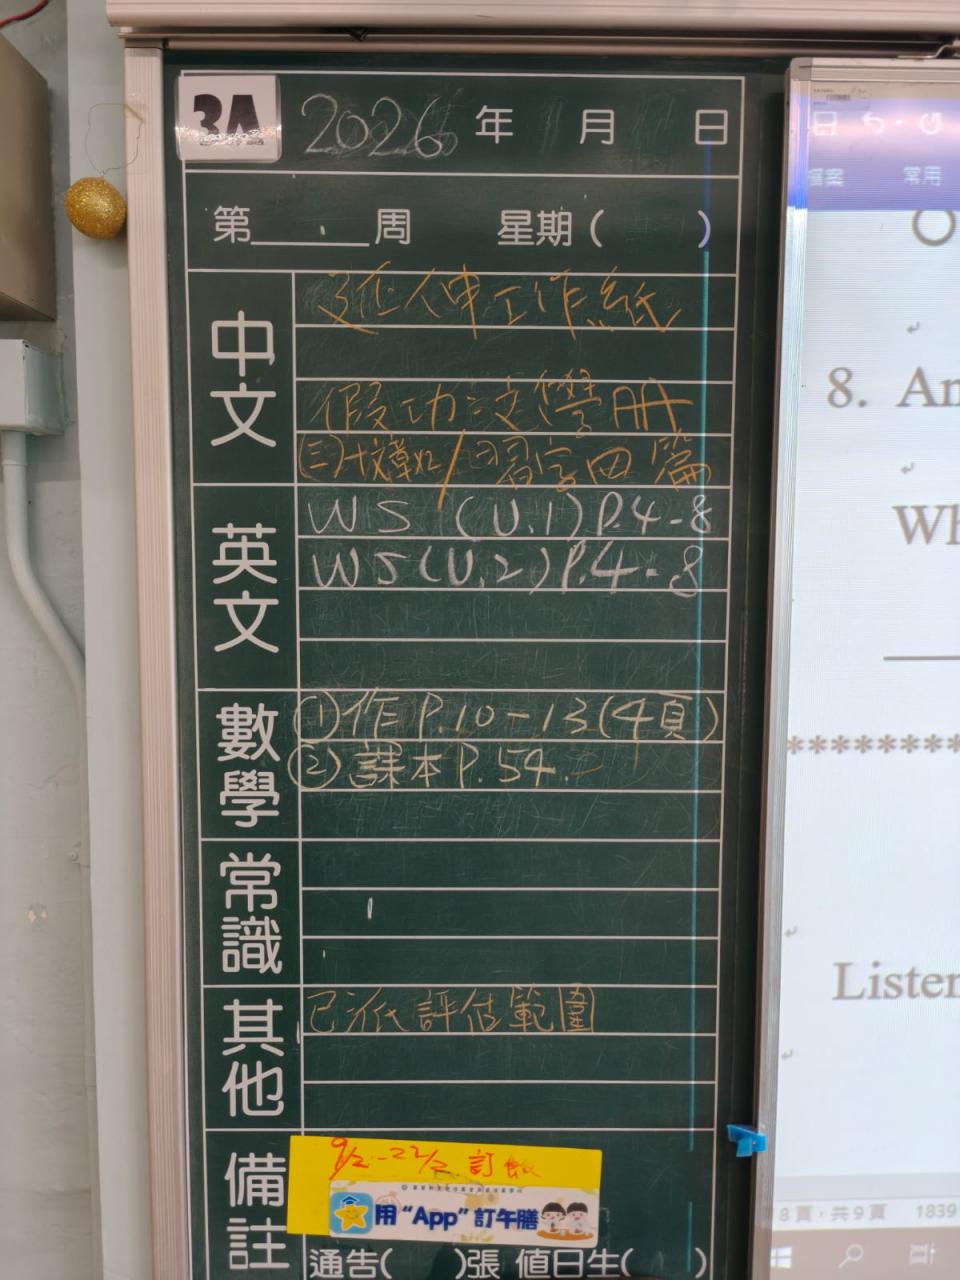 3A 2026 年 月 日
第 周 星期( )
中文
延伸工作紙
假功 學冊
習字四篇
英文
WS (U.1) P.4-8
WS (U.2) P.4-8
數學
①作 P.10-13(4頁)
②課本 P.54.
常識
其他
已派評估範圍
備註
9/2-22/2 訂飯
用“App”訂午膳
通告( )張 值日生( )
檔案 常用
8. An
Wh
*******
Listen
8 頁，共 9 頁 1839